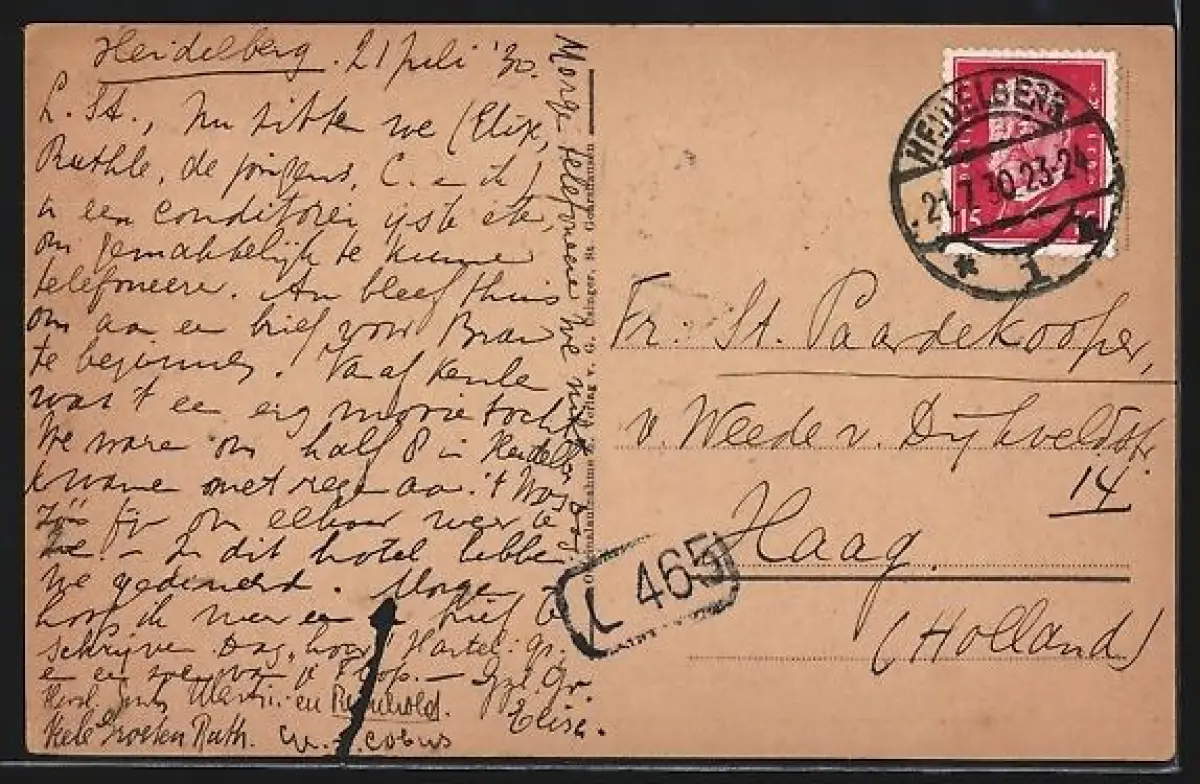 Heidelberg. 21 Juli '30.
L. St., Nu zitten we (Elise,
Ruthle, de jongens, C. en ik)
in een conditorei ijs te eten,
om gemakkelijk te kunnen
telefoneeren. An bleef thuis
om aan een brief voor Bram
te beginnen. Vanaf Keulen
was 't een erg mooie tocht
We waren om half 8 in Heidelb.
kwamen met regen aan. 't Was
fijn om elkaar weer te
zien - In dit hotel hebben
we gedineerd. Morgen
hoop ik weer een brief te
schrijven Dag, hoor! Hartel. gr.
en een zoen van
Herzl. Martin en Reinhold.
Viele Ruth.
Elise.
Morgen telefoneeren we
Originalaufnahme u. Verlag v. G. Uhinger, St. Goarshausen
HEIDELBERG
21.7.30.23-24
* 1 *
15 15
Fr: St. Paardekooper,
v. Weede v. Dijkveldstr.
14
Haag.
(Holland)
L 465